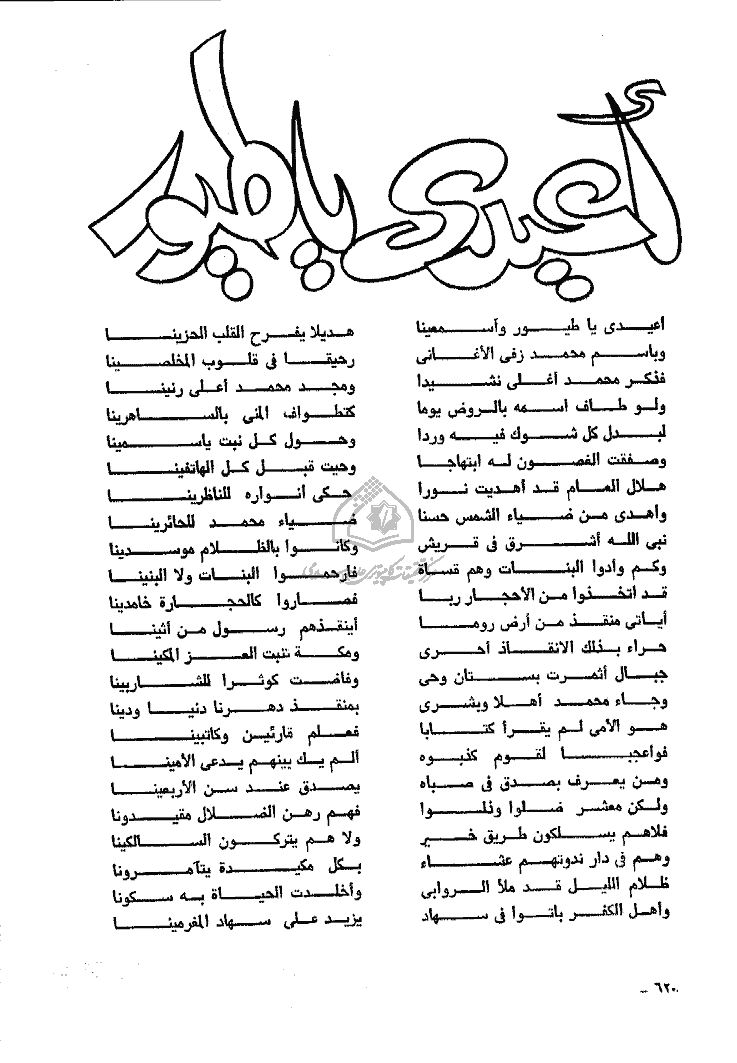 أعيدى يا طيور
أعيدى يا طيور وأسمعينا هديلا يفرح القلب الحزينا
وباسم محمد زفى الأغانى رحيقا فى قلوب المخلصينا
فذكر محمد أغلى نشيدا ومجد محمد أعلى رنينا
ولو طاف اسمه بالروض يوما كتطواف المنى بالساهرينا
لبدل كل شوك فيه وردا وحول كل نبت ياسمينا
وصفقت الغصون له ابتهاجا وحيت قبل كل الهاتفينا
هلال العام قد أهديت نورا حكى أنواره للناظرينا
وأهدى من ضياء الشمس حسنا ضياء محمد للحائرينا
نبى الله أشرق فى قريش وكانوا بالظلام موسدينا
وكم وأدوا البنات وهم قساة فارحموا البنات ولا البنينا
قد اتخذوا من الأحجار ربا فصاروا كالحجارة خامدينا
أيأتى منقذ من أرض روما أينقذهم رسول من أثينا
حراء بذلك الانقاذ أحرى ومكة تنبت العز المكينا
جبال أثمرت بستان وحى وفاضت كوثرا للشاربينا
وجاء محمد أهلا وبشرى بمنقذ دهرنا دنيا ودينا
هو الأمى لم يقرأ كتابا فعلم قارئين وكاتبينا
فواعجبا لقوم كذبوه ألم يك بينهم يدعى الأمينا
ومن يعرف بصدق فى صباه يصدق عند سن الأربعينا
ولكن معشر ضلوا وذلوا فهم رهن الضلال مقيدونا
فلاهم يسلكون طريق خير ولا هم يتركون السالكينا
وهم فى دار ندوتهم عشاء بكل مكيدة يتآمرونا
ظلام الليل قد ملأ الروابى وأخلدت الحياة به سكونا
وأهل الكفر باتوا فى سهاد يزيد على سهاد المغرمينا
٦٢٠ –